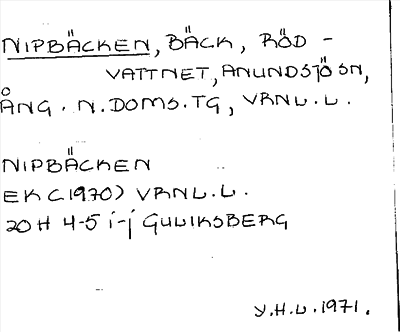 NIPBÄCKEN, BÄCK, RÖD-
VATTNET, ANUNDSJÖ SN,
ÅNG. N. DOMS. TG, VRNL.L.
NIPBÄCKEN
EK (1970) VRNL.L.
20H 4-5 i-j GULIKSBERG
Y.H.L. 1971.